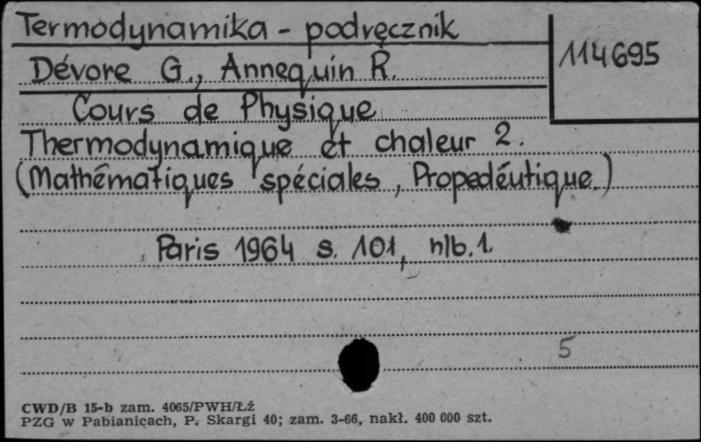 Termodynamika - podręcznik
114695
Dévore G., Annequin R.
Cours de Physique
Thermodynamique et chaleur 2.
(Mathématiques spéciales, Propedéutique.)
Paris 1964 s. 101, nlb. 1
5
CWD/B 15-b zam. 4065/PWH/Łź
PZG w Pabianicach, P. Skargi 40; zam. 3-66, nakł. 400 000 szt.